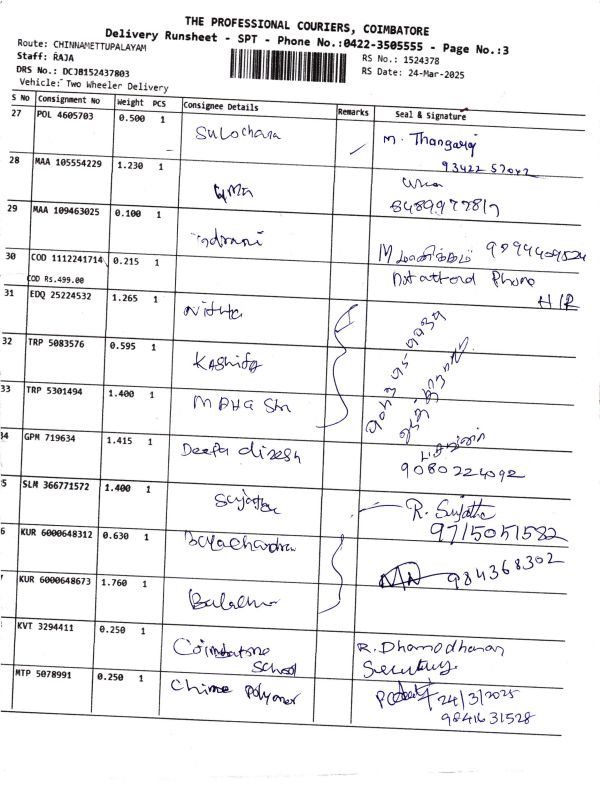 THE PROFESSIONAL COURIERS, COIMBATORE
Delivery Runsheet - SPT - Phone No.:0422-3505555 - Page No.:3
Route: CHINNAMETTUPALAYAM
Staff: RAJA
DRS No.: DCJB152437803
Vehicle: Two Wheeler Delivery
RS No.: 1524378
RS Date: 24-Mar-2025
S No Consignment No Weight PCS Consignee Details Remarks Seal & Signature
27 POL 4605703 0.500 1 Sulochana M. Thangaraj
93422 57042
28 MAA 105554229 1.230 1 UMA Uma
8489977817
29 MAA 109463025 0.100 1 Indrani 9894409524
30 COD 1112241714 0.215 1 Not attend Phone
COD Rs.499.00
H/R
31 EDQ 25224532 1.265 1 Nithya
32 TRP 5083576 0.595 1 Kashifa
33 TRP 5301494 1.400 1 MAHA Sri
34 GPM 719634 1.415 1 Deepa dinesh
9080224092
5 SLM 366771572 1.400 1 Sujatha R. Sujatha
9715051582
6 KUR 6000648312 0.630 1 Balachandra 984368302
7 KUR 6000648673 1.760 1
KVT 3294411 0.250 1 Coimbatore School R. Dhamodharan
Secretary
MTP 5078991 0.250 1 Chime Polymer 24/3/2025
9841631528